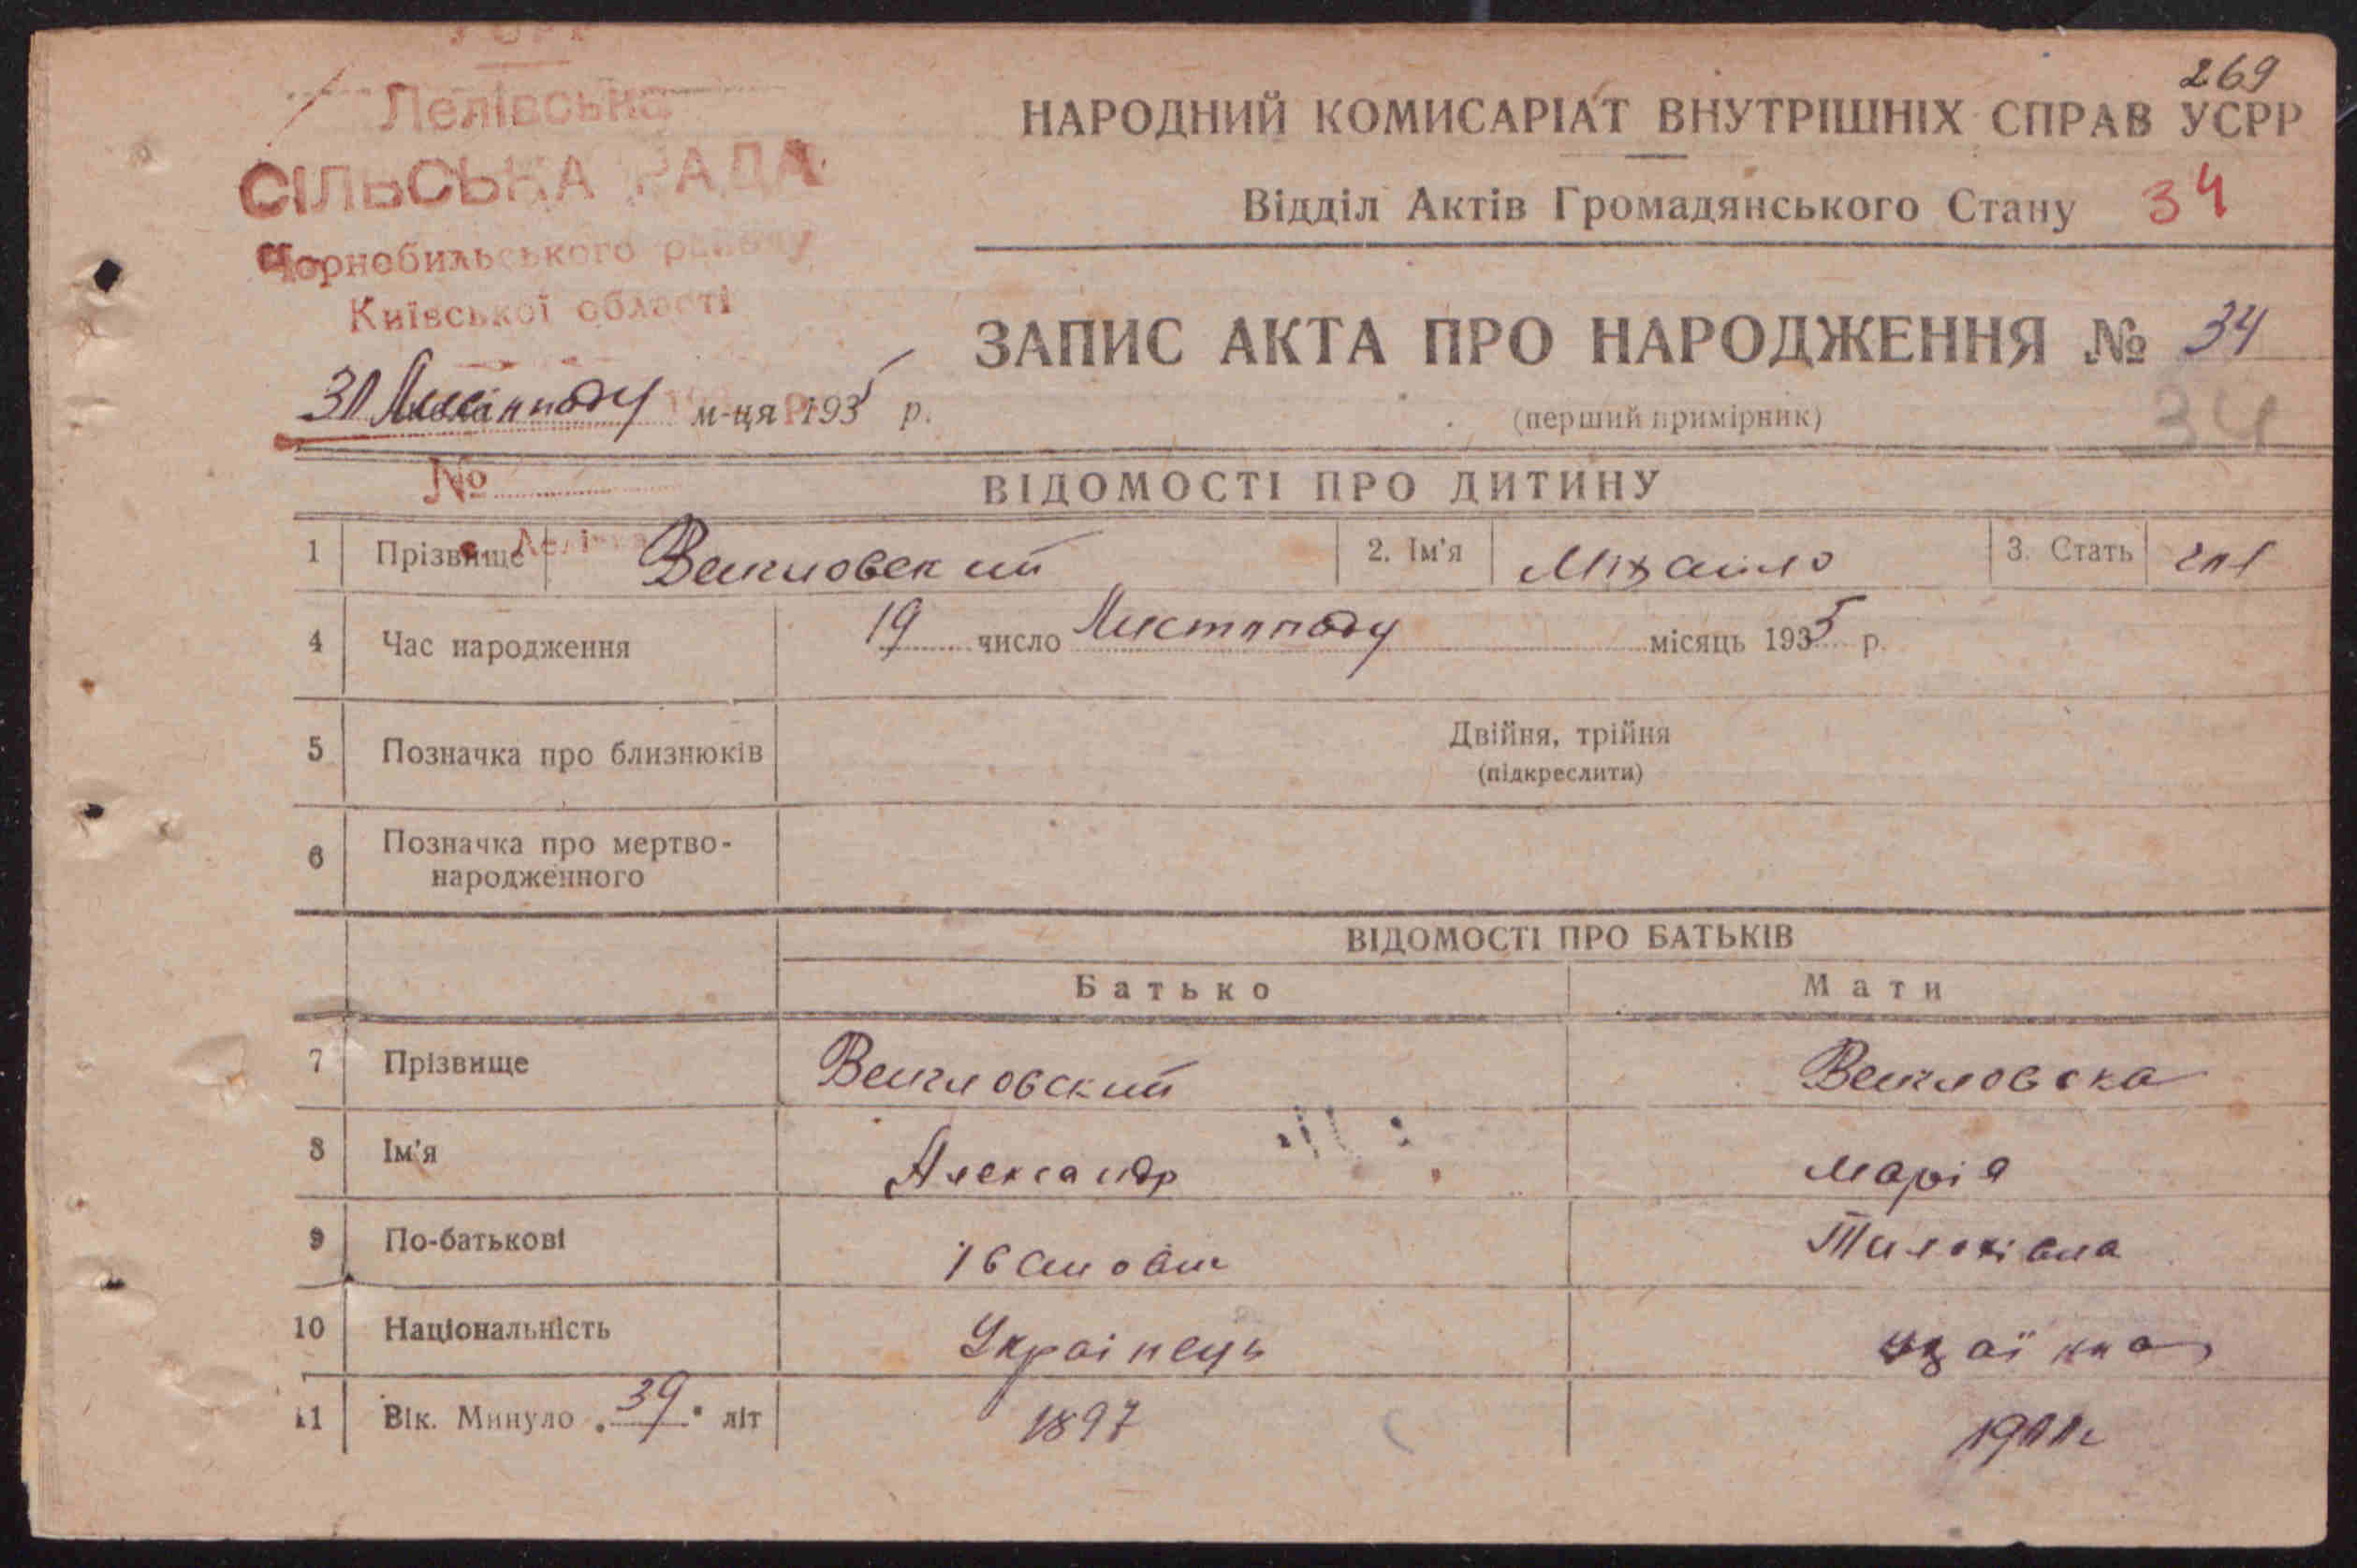 269
Лелівська
СІЛЬСЬКА РАДА
Чорнобильського району
Київської області
НАРОДНИЙ КОМИСАРІАТ ВНУТРІШНІХ СПРАВ УСРР
Відділ Актів Громадянського Стану 34
ЗАПИС АКТА ПРО НАРОДЖЕННЯ № 34
(перший примірник) 34
м-ця 1935 р.
№
ВІДОМОСТІ ПРО ДИТИНУ
1 Прізвище 2. Ім'я Міхайло 3. Стать
4 Час народження 19 число Листопаду місяць 1935 р.
5 Позначка про близнюків Двійня, трійня
(підкреслити)
6 Позначка про мертво-
народженного
ВІДОМОСТІ ПРО БАТЬКІВ
Батько Мати
7 Прізвище
8 Ім'я Александр Марія
9 По-батькові Івановіч
10 Національність Украінець
11 Вік. Минуло „39" літ 1897